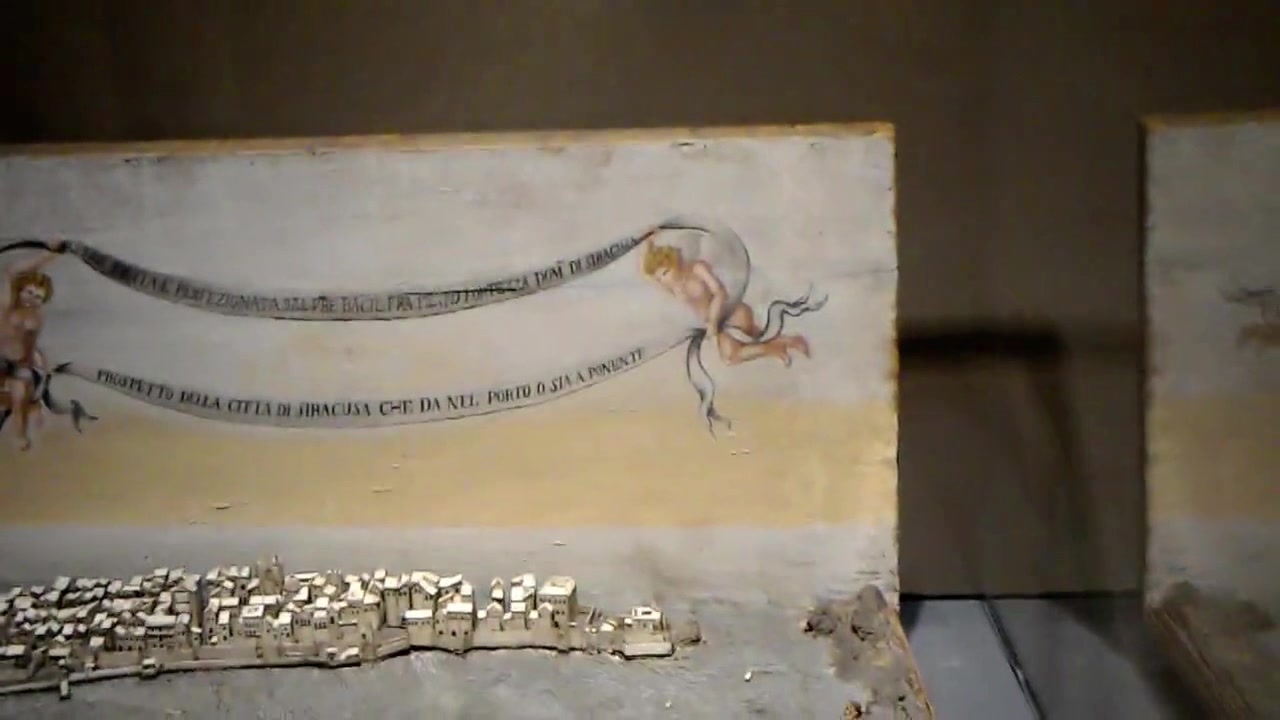 PERFEZIONATA DAL PRE BACIL FRA DOM DI SIRACUSA
PROSPETTO DELLA CITTA DI SIRACUSA CHE DA NEL PORTO O SIA A PONENTE